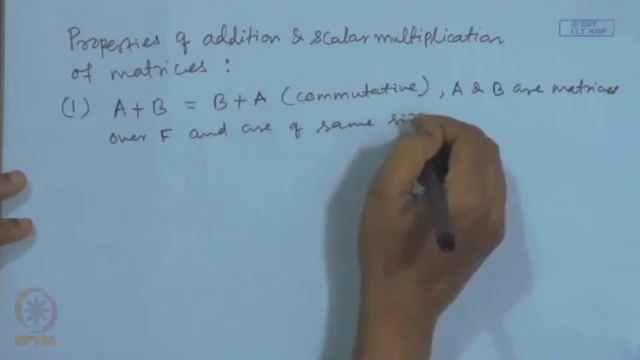 © CET
I.I.T. KGP
Properties of addition & scalar multiplication
of matrices :
(1) A + B = B + A (commutative), A & B are matrices
over F and are of same siz
NPTEL